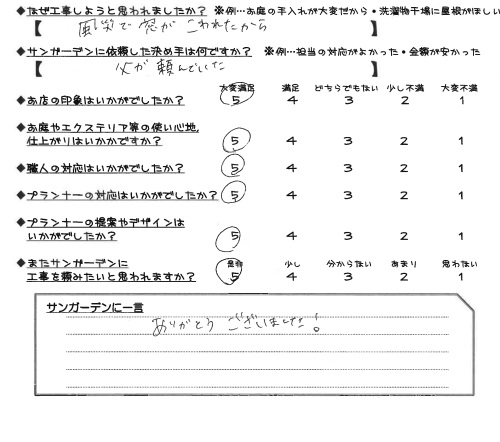 ◆なぜ工事しようと思われましたか？ ※例…お庭の手入れが大変だから・洗濯物干場に屋根がほしい
【 風災で窓がこわれたから 】
◆サンガーデンに依頼した決め手は何ですか？ ※例…担当の対応がよかった・金額が安かった
【 父が頼んでいた 】
大変満足 満足 どちらでもない 少し不満 大変不満
◆お店の印象はいかがでしたか？ 5 4 3 2 1
◆お庭やエクステリア等の使い心地、
仕上がりはいかかですか？ 5 4 3 2 1
◆職人の対応はいかがでしたか？ 5 4 3 2 1
◆プランナーの対応はいかがでしたか？ 5 4 3 2 1
◆プランナーの提案やデザインは
いかがでしたか？ 5 4 3 2 1
◆またサンガーデンに 是非 少し 分からない あまり 思わない
工事を頼みたいと思われますか？ 5 4 3 2 1
サンガーデンに一言
ありがとうございました！